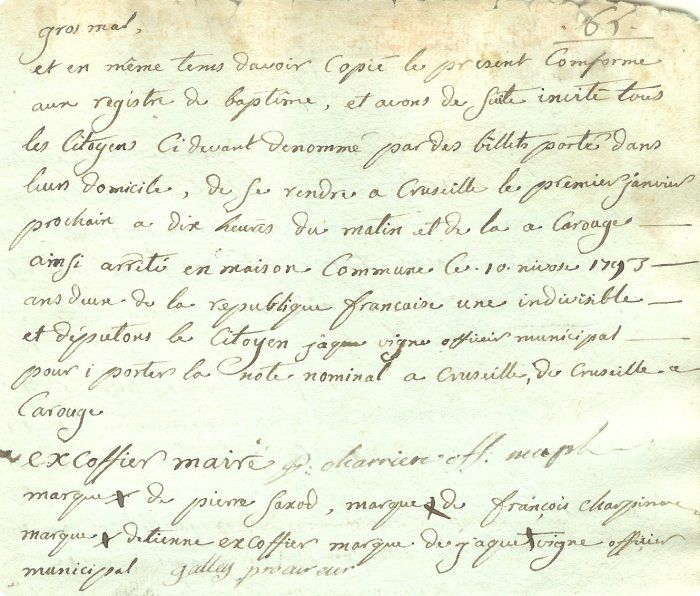 65
gros mal,
et en même tems davoir Copié le present Comforme
aux registre de baptême, et avons de suite invité tous
les Citoyens Ci devant denommé par des billets porté dans
leurs domicile, de se rendre a Cruseille le premier janvier
prochain a dix heures du matin et de la a Carouge
ainsi arrêté en maison Commune Ce 10 nivose 1793
ans deux de la republique francaise une indivisible
et députons le Citoyen jaque vigne officier municipal
pour i porter la note nominal a Cruseille, de Cruseille a
Carouge
excoffier maire charriere off. mcpl
marque x de pierre saxod, marque x de françois charpin
marque x detienne excoffier marque de jaque x vigne officier
municipal galley procureur